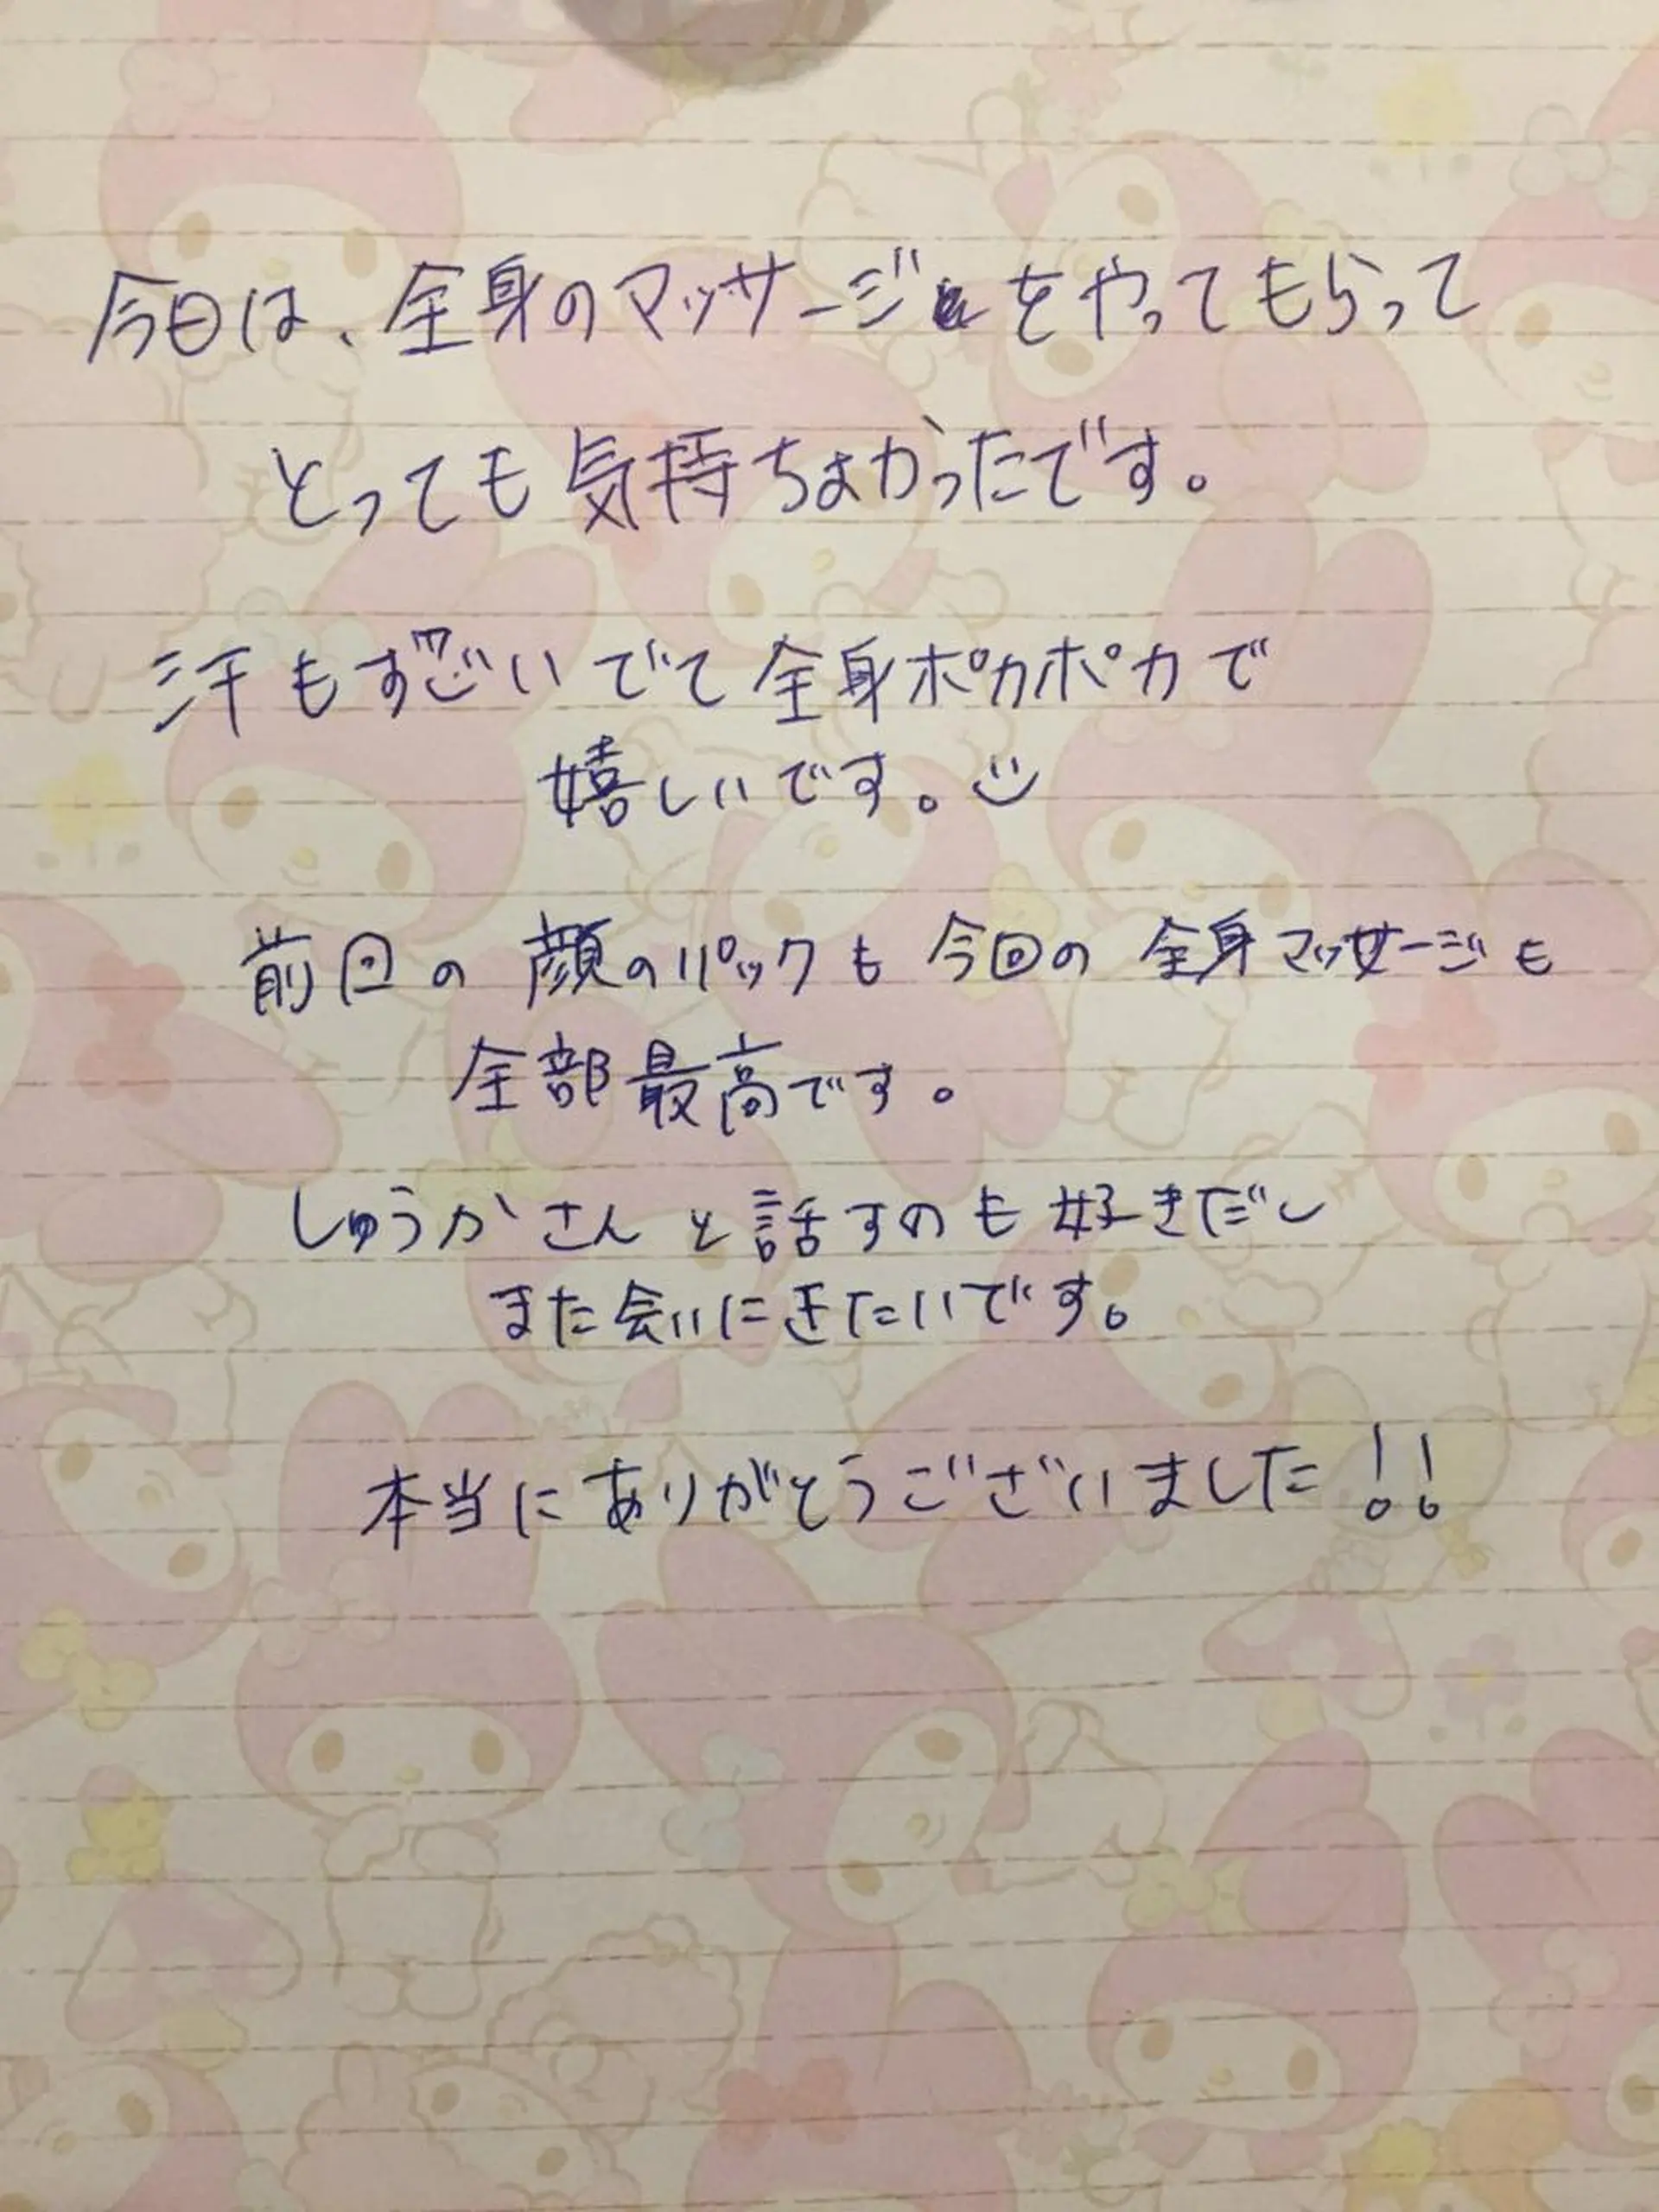 今日は、全身のマッサージをやってもらって
とっても気持ちよかったです。
汗もすごいでて全身ポカポカで
嬉しいです。
前回の顔のパックも今回の全身マッサージも
全部最高です。
しゅうかさんと話すのも好きだし
また会いにきたいです。
本当にありがとうございました!!